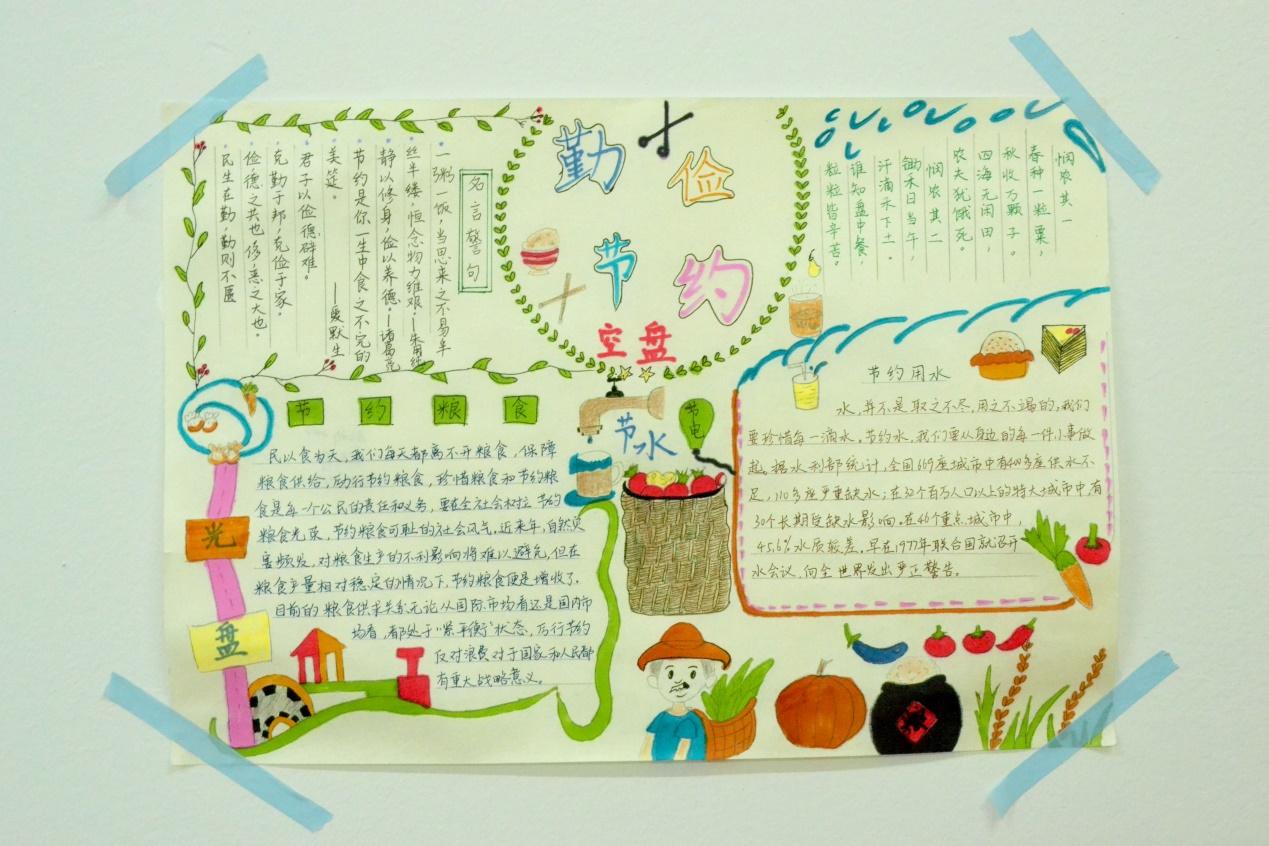 勤
俭
节
约
空盘
名言警句
一粥一饭，当思来之不易半
丝半缕，恒念物力维艰。—朱用纯
静以修身，俭以养德。—诸葛亮
节约是你一生中食之不完的
美筵。
——爱默生
君子以俭德辟难。
克勤于邦，克俭于家。
俭德之共也侈恶之大也。
民生在勤，勤则不匮
悯农其一
春种一粒粟，
秋收万颗子。
四海无闲田，
农夫犹饿死。
悯农其二
锄禾日当午，
汗滴禾下土。
谁知盘中餐，
粒粒皆辛苦。
节约粮食
民以食为天，我们每天都离不开粮食，保障
粮食供给，励行节约粮食，珍惜粮食和节约粮
食是每一个公民的责任和义务，要在全社会树立节约
粮食光荣，节约粮食可耻的社会风气。近来年，自然灾
害频发，对粮食生产的不利影响将难以避免，但在
粮食产量相对稳定的情况下，节约粮食便是增收了。
目前的粮食供求关系无论从国际市场看还是国内市
场看，都处于“紧平衡”状态，厉行节约
反对浪费对于国家和人民都
有重大战略意义。
光
盘
节水
节电
节约用水
水，并不是取之不尽，用之不竭的，我们
要珍惜每一滴水，节约水，我们要从身边的每一件小事做
起。据水利部统计，全国669座城市中有400多座供水不
足，110多座严重缺水；在32个百万人口以上的特大城市中，有
30个长期受缺水影响。在46个重点城市中，
45.6%水质较差，早在1977年联合国就召开
水会议，向全世界发出严正警告。